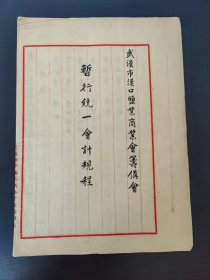 武漢市漢口鹽業商業會籌備會
暫行統一會計規程